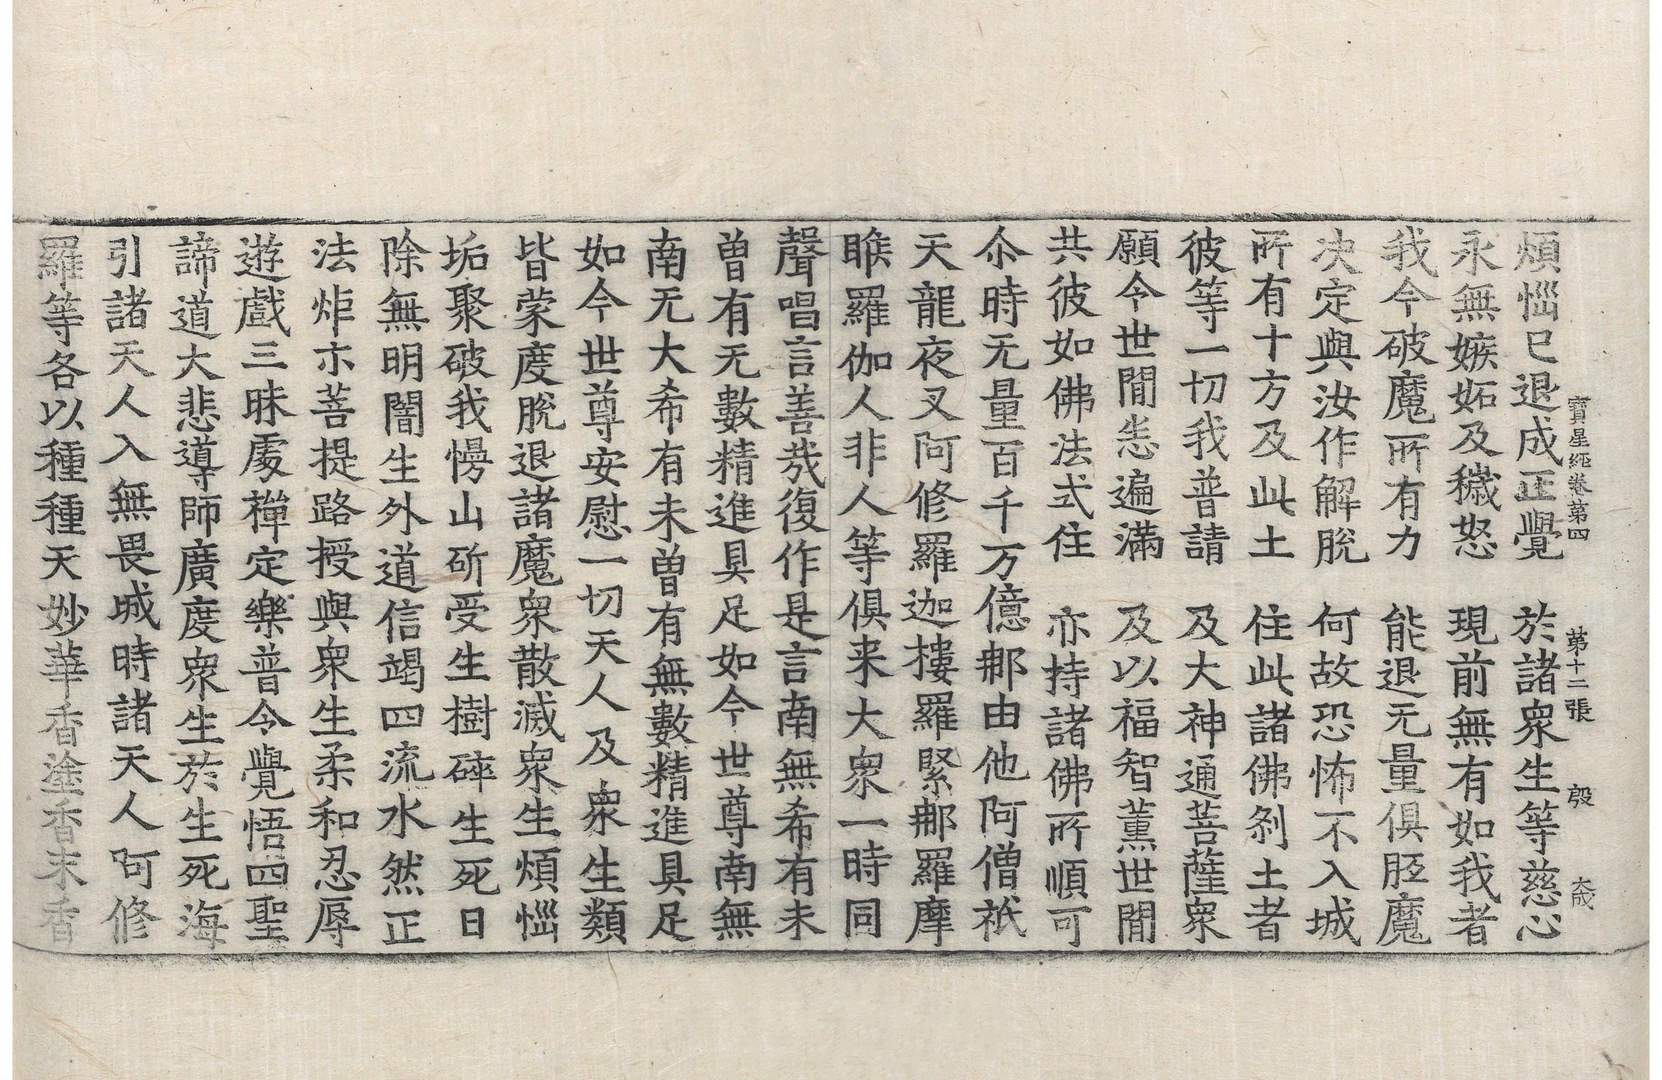 寶星經卷第四　第十二張　殷
煩惱已退成正覺　於諸衆生等慈心
永無嫉妬及穢怒　現前無有如我者
我今破魔所有力　能退无量俱胝魔
决定與汝作解脫　何故恐怖不入城
所有十方及此土　住此諸佛刹土者
彼等一切我普請　及大神通菩薩衆
願今世閒悉遍滿　及以福智薰世閒
共彼如佛法式住　亦持諸佛所順可
尒時无量百千万億那由他阿僧祇
天龍夜叉阿修羅迦樓羅緊那羅摩
睺羅伽人非人等俱来大衆一時同
聲唱言善哉復作是言南無希有未
曾有无數精進具足如今世尊南無
南无大希有未曾有無數精進具足
如今世尊安慰一切天人及衆生類
皆蒙度脫退諸魔衆散滅衆生煩惱
垢聚破我慢山斫受生樹碎生死日
除無明闇生外道信竭四流水然正
法炬示菩提路授與衆生柔和忍辱
遊戲三昧處禪定樂普令覺悟四聖
諦道大悲導師廣度衆生於生死海
引諸天人入無畏城時諸天人阿修
羅等各以種種天妙華香塗香末香